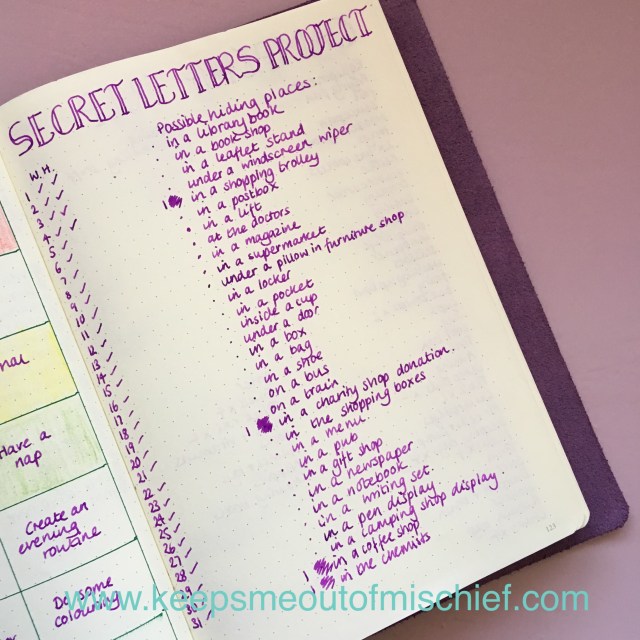 SECRET LETTERS PROJECT
W. H.
1 ✓ ✓
2 ✓ ✓
3 ✓ ✓
4 ✓ ✓
5 ✓
6 ✓
7 ✓
8 ✓
9 ✓
10 ✓
11 ✓
12 ✓
13 ✓
14 ✓
15 ✓
16 ✓
17 ✓
18 ✓
19 ✓
20 ✓
21 ✓
22 ✓
23 ✓
24 ✓
25 ✓
26 ✓
27 ✓
28 ✓
29 ✓
30 ✓
31 ✓
Possible hiding places:
in a library book
in a book shop
in a leaflet stand
under a windscreen wiper
in a shopping trolley
1 in a postbox
in a lift
at the doctors
in a magazine
in a supermarket
under a pillow in furniture shop
in a locker
in a pocket
inside a cup
under a door
in a box
in a bag
in a shoe
on a bus
on a train
1 in a charity shop donation.
in the shopping boxes
in a menu
in a pub
in a gift shop
in a newspaper
in a notebook
in a writing set.
in a pen display
in a camping shop display.
1 in a coffee shop
1 in the chemists
123
nal
Have a
nap
Create an
evening
routine
Do some
colouring
www.keepsmeoutofmischief.com